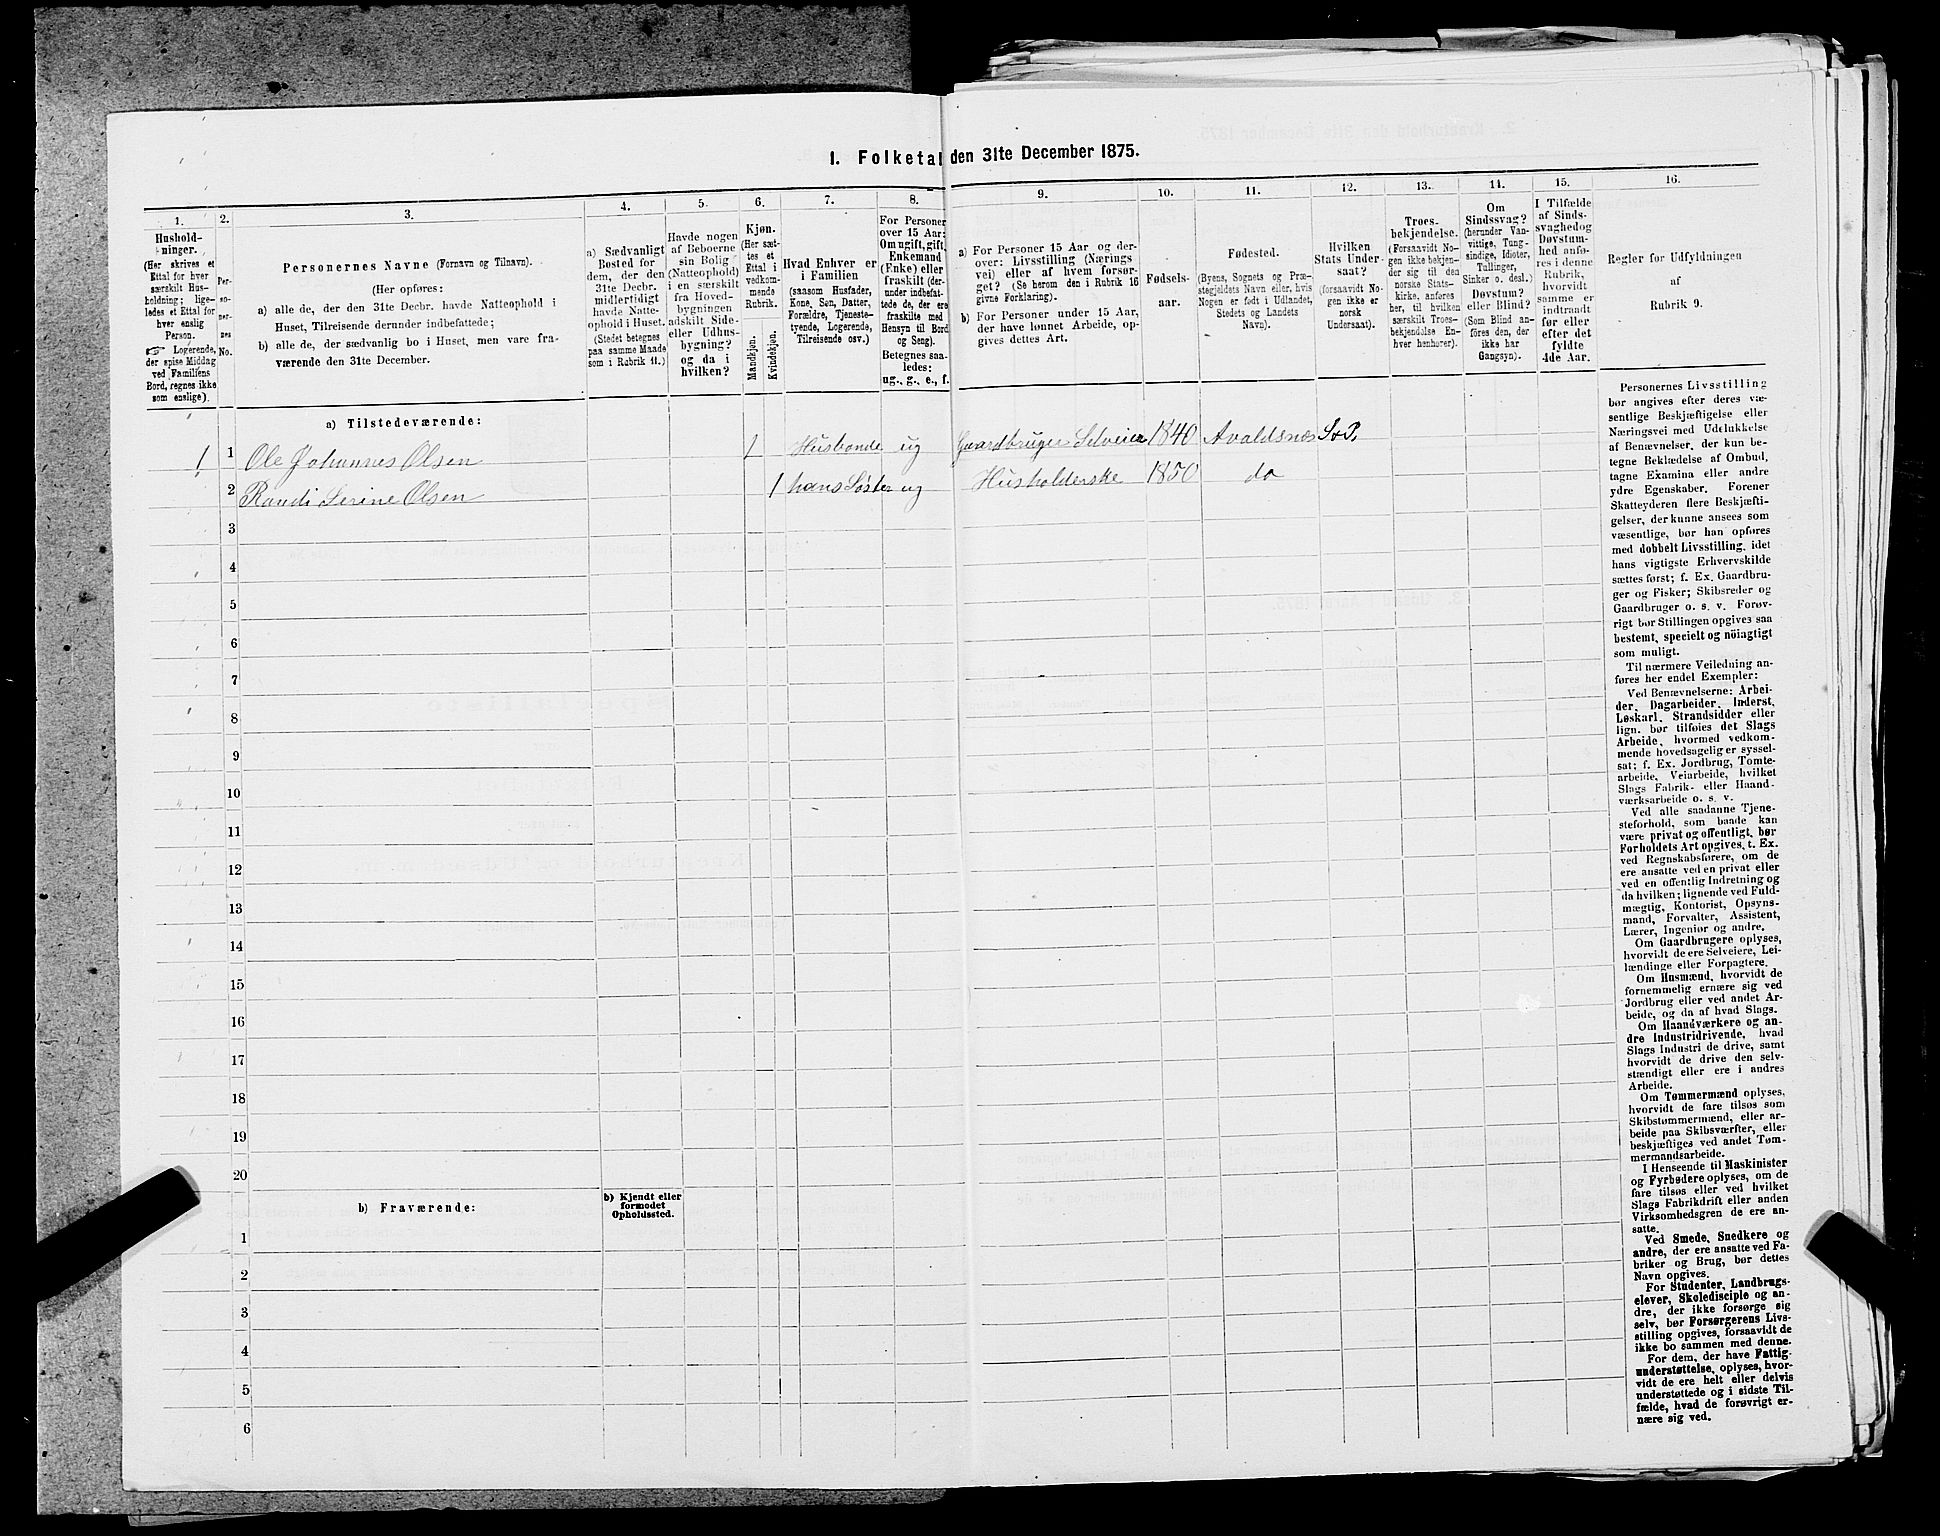 1. Folketal den 31te December 1875.
1.
Hushold-
ninger.
(Her skrives et
Ettal for hver
særskilt Hus-
holdning; lige-
ledes et Ettal for
hver enslig
Person.
☞ Logerende,
der spise Middag
ved Familiens
Bord, regnes ikke
som enslige).
2.
Per-
so-
ner-
nes
No.
3.
Personernes Navne (Fornavn og Tilnavn).
(Her opføres:
a) alle de, der den 31te Decbr. havde Natteophold i
Huset, Tilreisende derunder indbefattede;
b) alle de, der sædvanlig bo i Huset, men vare fra-
værende den 31te December.
4.
a) Sædvanligt
Bosted for
dem, der den
31te Decbr.
midlertidigt
havde Natte-
ophold i Huset.
(Stedet betegnes
paa samme Maade
som i Rubrik 11.)
5.
Havde nogen
af Beboerne
sin Bolig
(Natteophold)
i en særskilt
fra Hoved-
bygningen
adskilt Side-
eller Udhus-
bygning?
og da i
hvilken?
6.
Kjøn.
(Her sæt-
tes et
Ettal i
vedkom-
mende
Rubrik.
Mandkjøn.
Kvindekjøn.
7.
Hvad Enhver er
i Familien
(saasom Husfader,
Kone, Søn, Datter,
Forældre, Tjeneste-
tyende, Logerende,
Tilreisende osv.)
8.
For Personer
over 15 Aar:
Om ugift, gift,
Enkemand
(Enke) eller
fraskilt (der-
under indbefat-
tede de, der ere
fraskilte med
Hensyn til Bord
og Seng).
Betegnes saa-
ledes:
ug., g., e., f.
9.
a) For Personer 15 Aar og der-
over: Livsstilling (Nærings
vei) eller af hvem forsør-
get? (Se herom den i Rubrik 16
givne Forklaring).
b) For Personer under 15 Aar,
der have lønnet Arbeide, op-
gives dettes Art.
10.
Fødsels-
aar.
11.
Fødested.
(Byens, Sognets og Præ-
stegjeldets Navn eller, hvis
Nogen er født i Udlandet,
Stedets og Landets
Navn).
12.
Hvilken
Stats Under-
saat?
(forsaavidt No-
gen ikke er
norsk
Undersaat).
13.
Troes-
bekjendelse.
(Forsaavidt No-
gen ikke bekjen-
der sig til den
norske Stats-
kirke, anføres
her, til hvilken
særskilt Troes-
bekjendelse En-
hver henhører).
14.
Om
Sindssvag?
(herunder Van-
vittige, Tung-
sindige, Idioter,
Tullinger,
Sinker o. desl.)
Døvstum?
eller Blind?
(Som Blind an-
føres den, der
ikke har
Gangsyn).
15.
I Tilfælde
af Sinds-
svaghed og
Døvstum-
hed anfø-
res i denne
Rubrik,
hvorvidt
samme er
indtraadt
før eller
efter det
fyldte
4de Aar.
16.
Regler for Udfyldningen
af
Rubrik 9.
a) Tilstedeværende:
1 1 Ole Johannes Olsen 1 Husbonde ug Gaardbruger Selveier 1840 Avaldsnes S&P.
2 Randi Serine Olsen 1 hans Søster ug Husholderske 1850 do
3
4
5
6
7
8
9
10
11
12
13
14
15
16
17
18
19
20
b) Fraværende:
b) Kjendt eller
formodet
Opholdssted.
1
2
3
4
5
6
Personernes Livsstilling
bør angives efter deres væ-
sentlige Beskjæftigelse eller
Næringsvei med Udelukkelse
af Benævnelser, der kun be-
tegne Beklædelse af Ombud,
tagne Examina eller andre
ydre Egenskaber. Forener
Skatteyderen flere Beskjæfti-
gelser, der kunne ansees som
væsentlige, bør han opføres
med dobbelt Livsstilling, idet
hans vigtigste Erhvervskilde
sættes først; f. Ex. Gaardbru-
ger og Fisker; Skibsreder og
Gaardbruger o. s. v. Forøv-
rigt bør Stillingen opgives saa
bestemt, specielt og nöiagtigt
som muligt.
Til nærmere Veiledning an-
føres her endel Exempler:
Ved Benævnelserne: Arbei-
der, Dagarbeider, Inderst,
Løskarl, Strandsidder eller
lign. bør tilføies det Slags
Arbeide, hvormed vedkom-
mende hovedsagelig er syssel-
sat; f. Ex. Jordbrug, Tomte-
arbeide, Veiarbeide, hvilket
Slags Fabrik- eller Haand-
værksarbeide o. s. v.
Ved alle saadanne Tjene-
steforhold, som baade kan
være privat og offentligt, bør
Forholdets Art opgives, t. Ex.
ved Regnskabsførere, om de
ere ansatte ved en privat eller
ved en offentlig Indretning og
da hvilken; lignende ved Fuld-
mægtig, Kontorist, Opsyns-
mand, Forvalter, Assistent,
Lærer, Ingeniør og andre.
Om Gaardbrugere oplyses,
hvorvidt de ere Selveiere, Lei-
lændinge eller Forpagtere.
Om Husmænd, hvorvidt de
fornemmelig ernære sig ved
Jordbrug eller ved andet Ar-
beide, og da af hvad Slags.
Om Haandværkere og an-
dre Industridrivende, hvad
Slags Industri de drive, samt
hvorvidt de drive den selv-
stændigt eller ere i andres
Arbeide.
Om Tømmermænd oplyses,
hvorvidt de fare tilsøs som
Skibstømmermænd, eller ar-
beide paa Skibsværfter, eller
beskjæftiges ved andet Tøm-
mermandsarbeide.
I Henseende til Maskinister
og Fyrbødere oplyses, om de
fare tilsøs eller ved hvilket
Slags Fabrikdrift eller anden
Virksomhedsgren de ere an-
satte.
Ved Smede, Snedkere og
andre, der ere ansatte ved Fa-
briker og Brug, bør dettes
Navn opgives.
For Studenter, Landbrugs-
elever, Skoledisciple og an-
dre, der ikke forsørge sig
selv, bør Forsørgerens Livs-
stilling opgives, forsaavidt de
ikke bo sammen med denne.
For dem, der have Fattig-
understøttelse, oplyses, hvor-
vidt de ere helt eller delvis
understøttede og i sidste Til-
fælde, hvad de forøvrigt er-
nære sig ved.